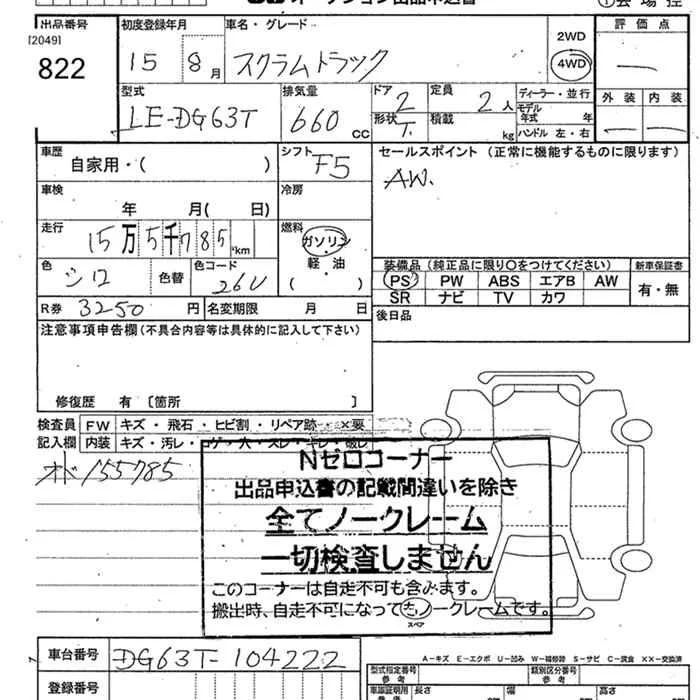 オークション出品申込書
①会場控
出品番号 初度登録年月 車名・グレード 2WD 評価点
[2049]
822 15 8月 スクラムトラック 4WD —
型式 排気量 ドア 2 定員 2人 ディーラー・並行 外装 内装
LE-DG63T 660cc 形状 T. 積載 kg モデル年式 年 — —
ハンドル 左・右
車歴 自家用・( ) シフト F5 セールスポイント (正常に機能するものに限ります)
車検 年 月( 日) 冷房 AW.
走行 15万5千785km 燃料 ガソリン
軽・油
( )
色 シロ 色替 色コード 26U 装備品 (純正品に限り○をつけてください) 新車保証書
PS PW ABS エアB AW 有・無
R券 3250円 名変期限 月 日 SR ナビ TV カワ
注意事項申告欄(不具合内容等は具体的に記入して下さい) 後日品
修復歴 有 〔箇所 〕
検査員 FW キズ・飛石・ヒビ割・リペア跡 ×要
記入欄 内装 キズ・汚レ・コゲ・穴・スレ・キレ・破レ
オド155785
Nゼロコーナー
出品申込書の記載間違いを除き
全てノークレーム
一切検査しません
このコーナーは自走不可も含みます。
搬出時、自走不可になってもノークレームです。
スペア
車台番号 DG63T-104222
A-キズ E-エクボ U-凹み W-補修跡 S-サビ C-腐食 XX-交換済
登録番号 型式指定番号 参考 類別区分番号 参考
車庫証明用 長さ 幅 高さ